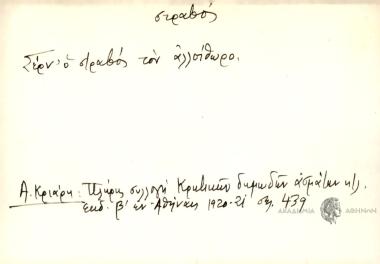 στραβός
Σέρν' ὁ στραβός τὸν ἀλλοίθωρο.
Α. Κριάρη: Πλήρης συλλογή Κρητικῶν δημωδῶν ἀσμάτων κτλ.
ἐκδ. β' ἐν Ἀθήναις 1920-21 σελ. 439
ΑΚΑΔΗΜΙΑ ΑΘΗΝΩΝ